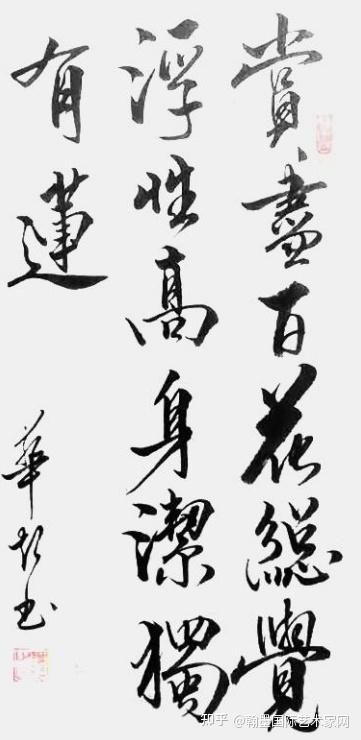 賞盡百花總覺
浮性高身潔獨
有蓮
華彭书
知乎 @翰墨国际艺术家网